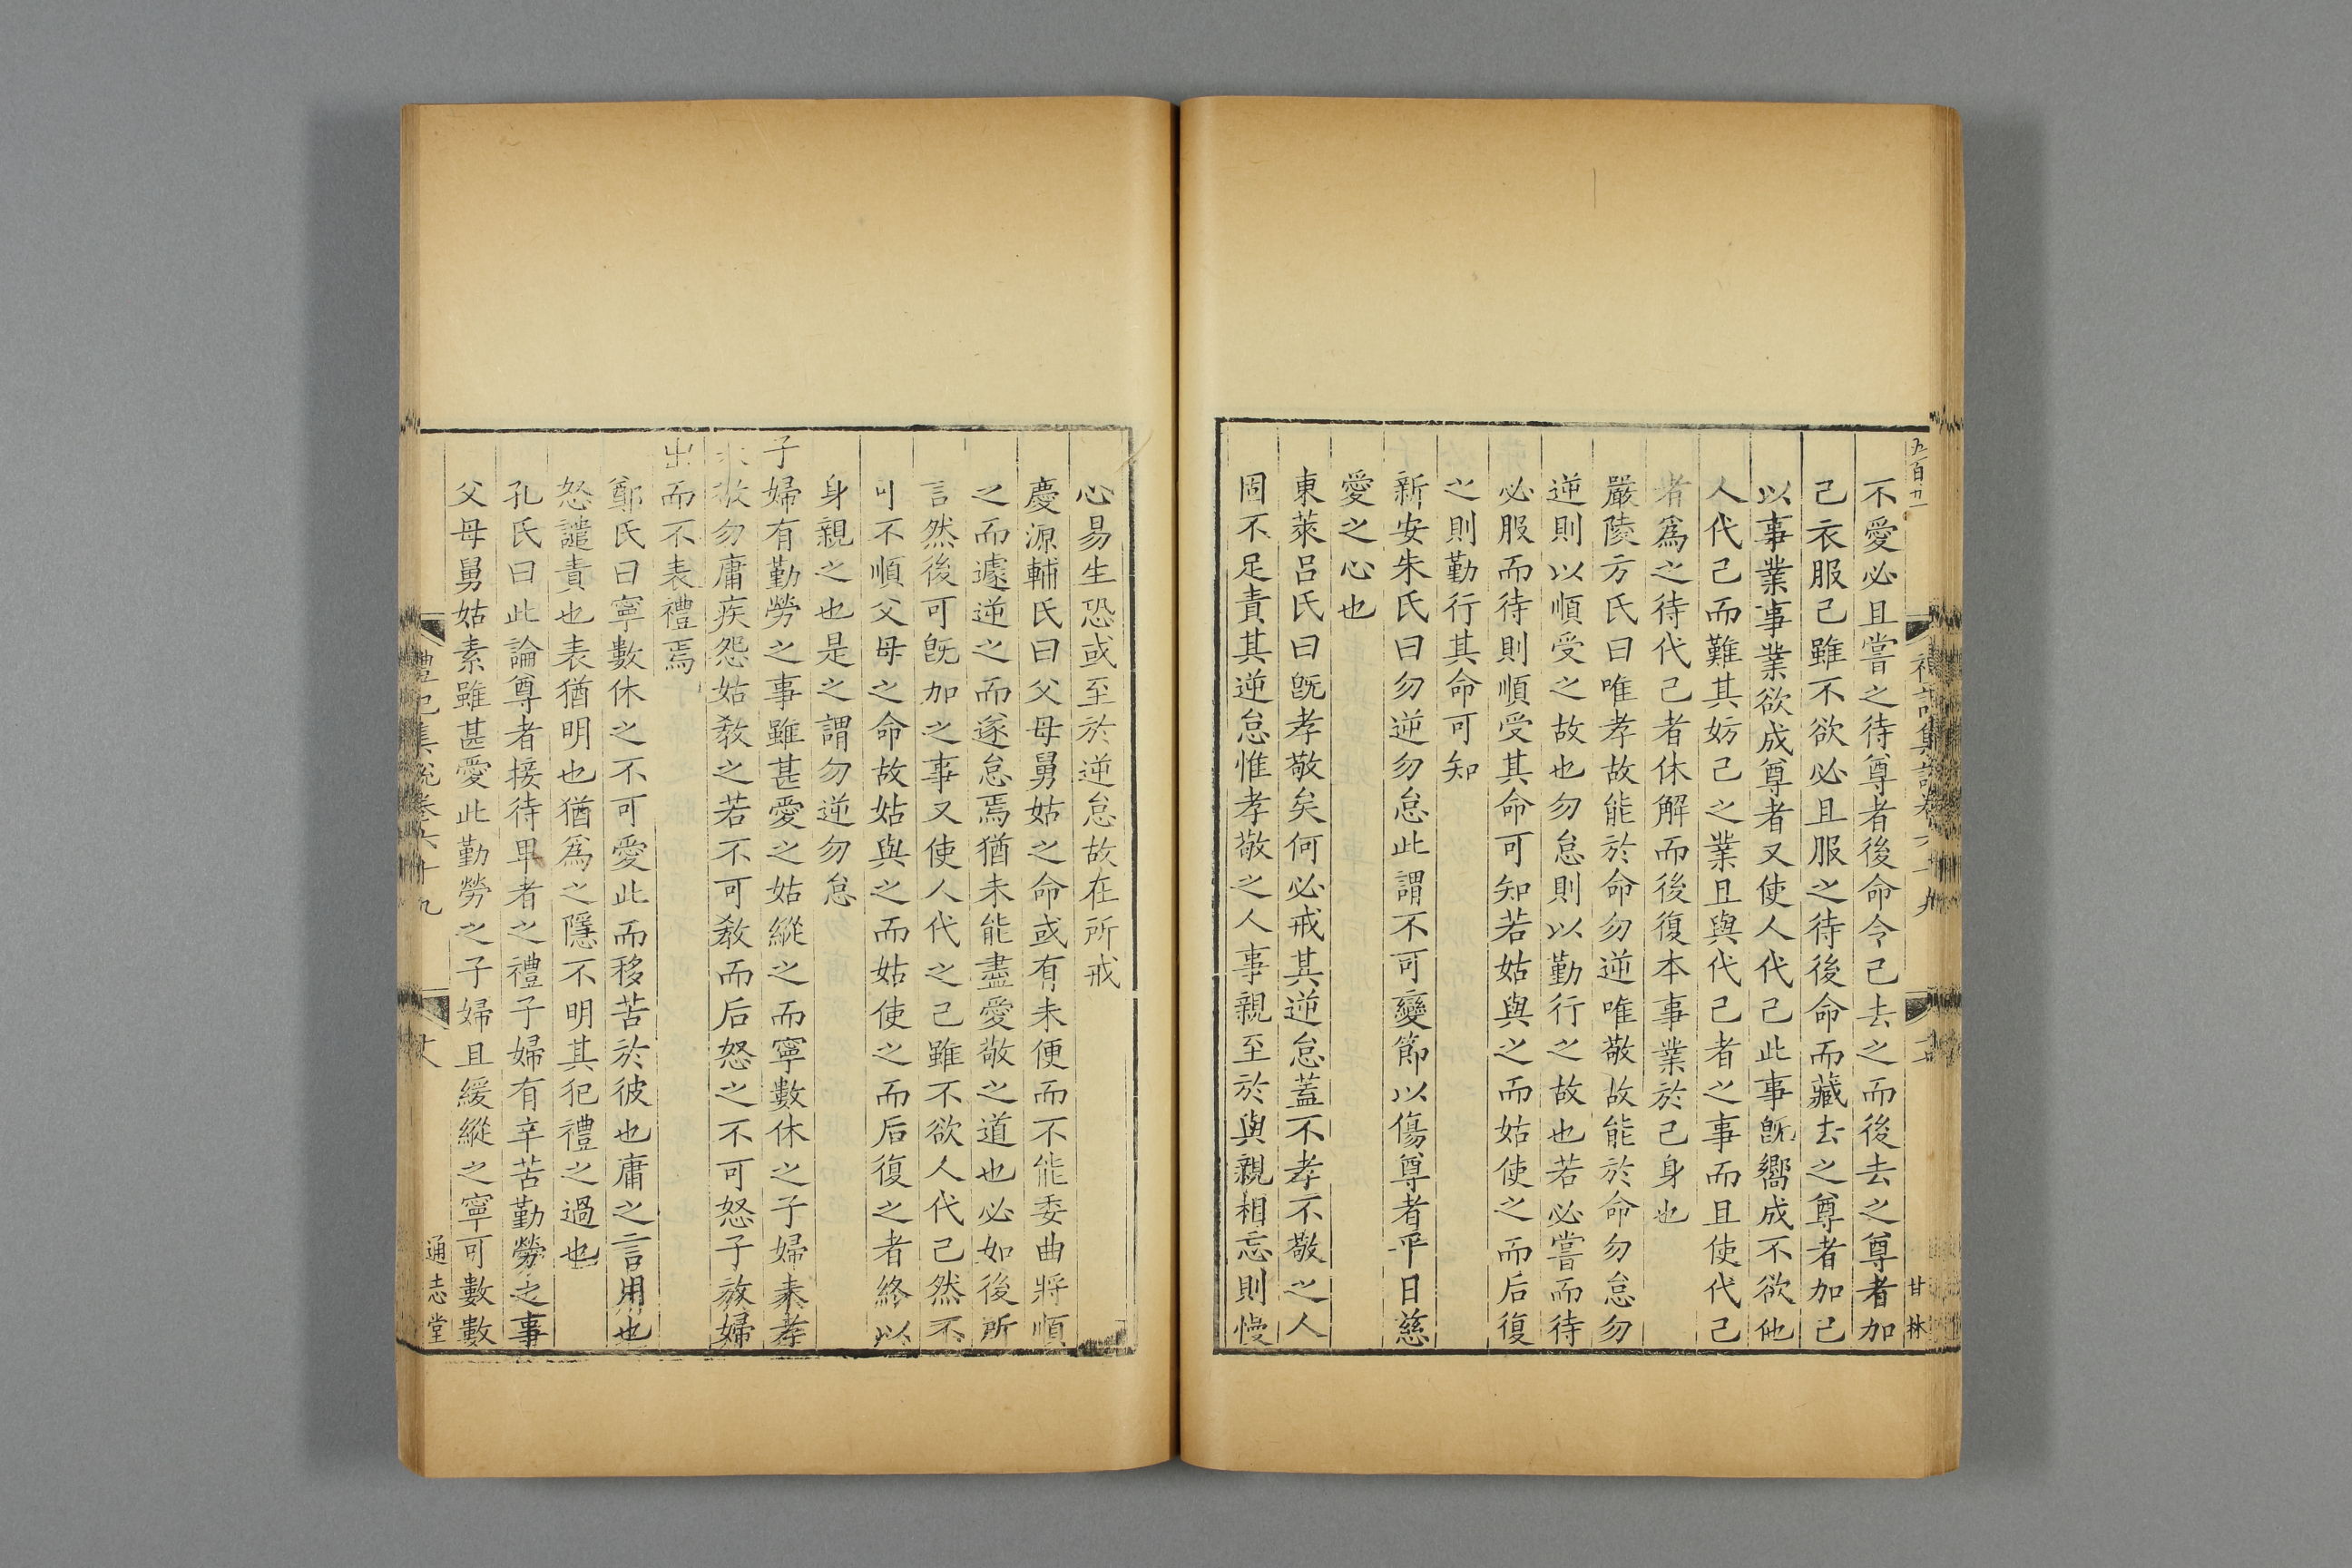 五百九一
禮記集說卷六十九
甘林
不愛必且嘗之待尊者後命令己去之而後去之尊者加
己衣服己雖不欲必且服之待後命而藏去之尊者加己
以事業事業欲成尊者又使人代己此事旣嚮成不欲他
人代己而難其妨己之業且與代己者之事而且使代己
者爲之待代己者休解而後復本事業於己身也
嚴陵方氏曰唯孝故能於命勿逆唯敬故能於命勿怠勿
逆則以順受之故也勿怠則以勤行之故也若必嘗而待
必服而待則順受其命可知若姑與之而姑使之而后復
之則勤行其命可知
新安朱氏曰勿逆勿怠此謂不可變節以傷尊者平日慈
愛之心也
東萊呂氏曰旣孝敬矣何必戒其逆怠蓋不孝不敬之人
固不足責其逆怠惟孝敬之人事親至於與親相忘則慢
心易生恐或至於逆怠故在所戒
慶源輔氏曰父母舅姑之命或有未便而不能委曲將順
之而遽逆之而遂怠焉猶未能盡愛敬之道也必如後所
言然後可旣加之事又使人代之己雖不欲人代己然不
可不順父母之命故姑與之而姑使之而后復之者終以
身親之也是之謂勿逆勿怠
子婦有勤勞之事雖甚愛之姑縱之而寧數休之子婦未孝
未敬勿庸疾怨姑敎之若不可敎而后怒之不可怒子放婦
出而不表禮焉
鄭氏曰寧數休之不可愛此而移苦於彼也庸之言用也
怒譴責也表猶明也猶爲之隱不明其犯禮之過也
孔氏曰此論尊者接待卑者之禮子婦有辛苦勤勞之事
父母舅姑素雖甚愛此勤勞之子婦且緩縱之寧可數數
禮記集說卷六十九
通志堂